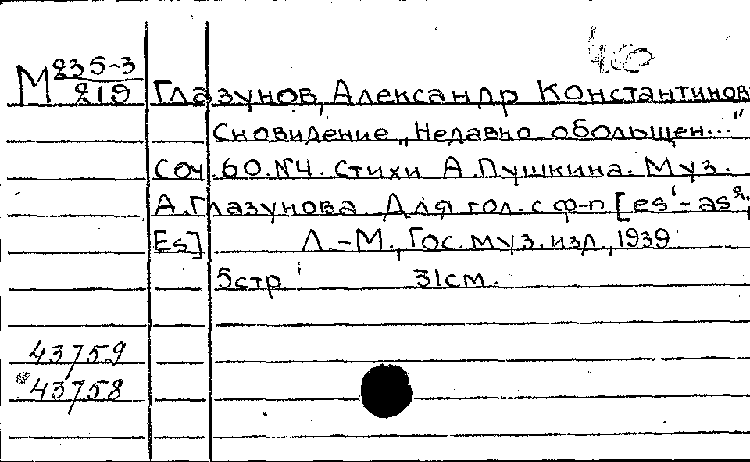 40
М 235-3/219 Глазунов, Александр Константинов
Сновидение „Недавно обольщен..."
Соч. 60. №4. Стихи А. Пушкина. Муз.
А. Глазунова. Для гол. с ф-п [es¹-as²,
Es] Л.-М., Гос. муз. изд., 1939
5 стр 31 см.
43759
43758